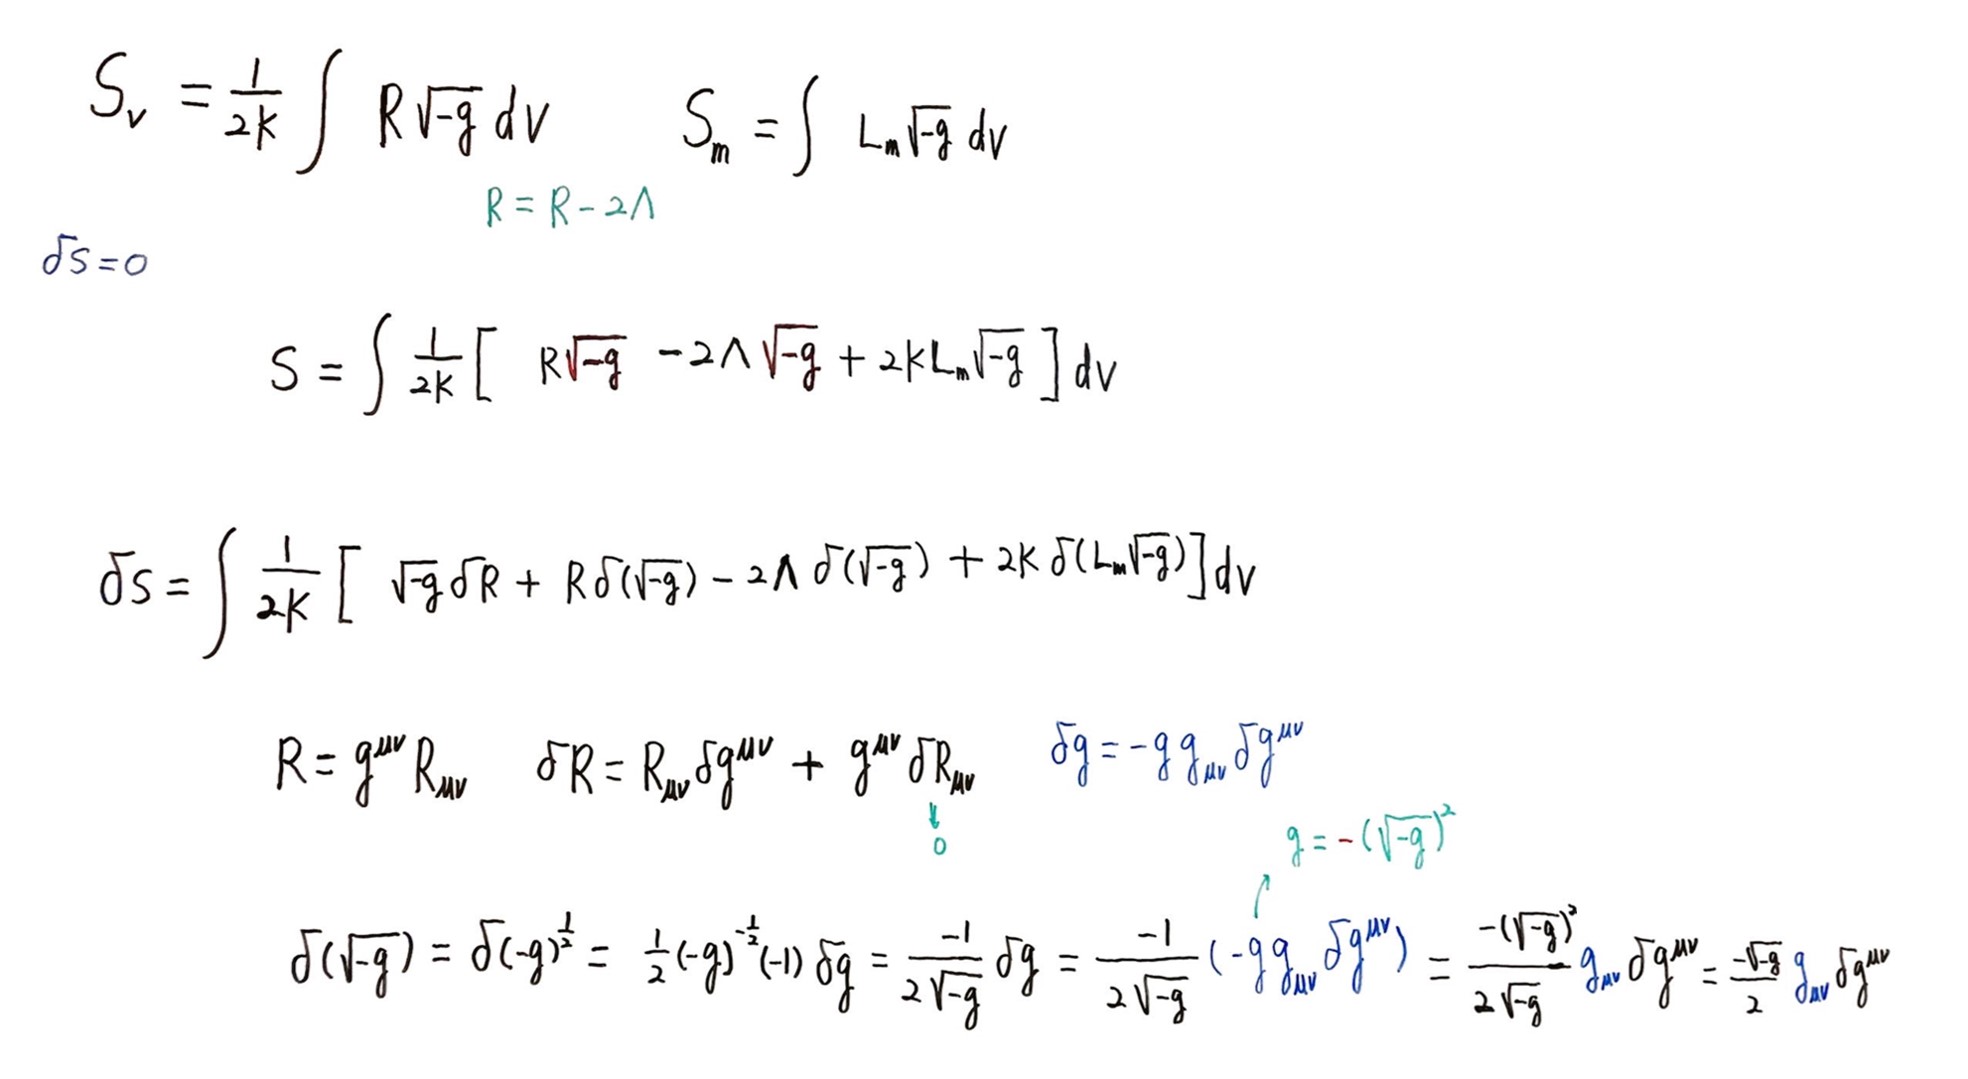 S_v = \frac{1}{2K} ∫ R√-g dV    S_m = ∫ L_m√-g dV
R = R - 2Λ
δS = 0
S = ∫ \frac{1}{2K} [ R√-g - 2Λ√-g + 2KL_m√-g ] dV
δS = ∫ \frac{1}{2K} [ √-g δR + Rδ(√-g) - 2Λ δ(√-g) + 2K δ(L_m√-g) ] dV
R = g^{μν} R_{μν}    δR = R_{μν} δg^{μν} + g^{μν} δR_{μν}    δg = -g g_{μν} δg^{μν}
↓
0
g = -(√-g)^2
δ(√-g) = δ(-g)^{\frac{1}{2}} = \frac{1}{2}(-g)^{-\frac{1}{2}}(-1) δg = \frac{-1}{2√-g} δg = \frac{-1}{2√-g} (-g g_{μν} δg^{μν}) = \frac{-(√-g)^2}{2√-g} g_{μν} δg^{μν} = \frac{-√-g}{2} g_{μν} δg^{μν}